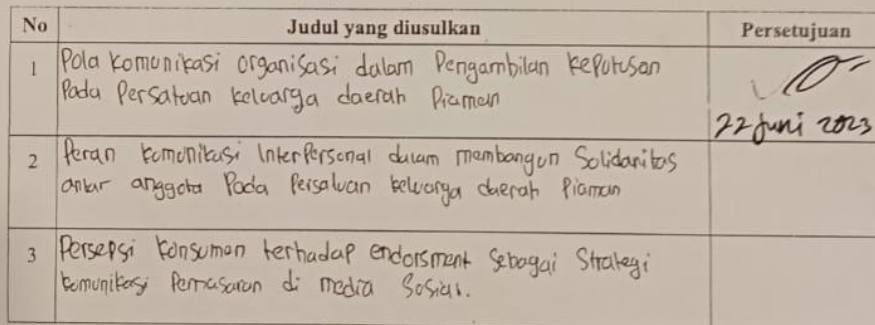 No Judul yang diusulkan Persetujuan
1 Pola Komunikasi organisasi dalam Pengambilan Keputusan
Pada Persatuan Keluarga daerah Piaman
22 Juni 2023
2 Peran Komunikasi InterPersonal dalam membangun Solidaritas
antar anggota Pada Persatuan keluarga daerah Piaman
3 Persepsi Konsumen terhadap endorsment Sebagai Strategi
komunikasi Pemasaran di media Sosial.